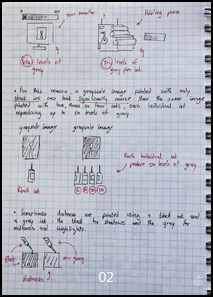 your monitor
Printing press
256 levels of gray
50 levels of gray per ink.
• For this reason, a grayscale image printed with only
black ink can look significantly coarser than the same image
printed with two, three or four inks, each individual ink
reproducing up to 50 levels of gray
grayscale image
grayscale image
Each individual ink
produce 50 levels of gray
Black ink
• Sometimes duotones are printed using a black ink and
a gray ink the black for shadows and the gray for
midtones and highlights
Black
gray
duotones
02